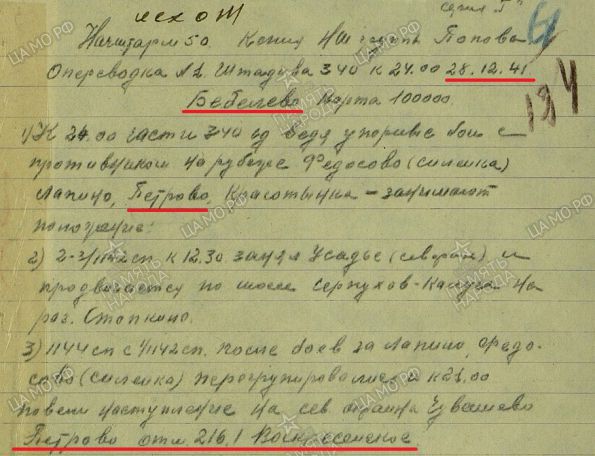 исхот
серия "Г"
Начштарм 50 Копия НШ группы Попова
Опереводка №2. Штадива 340 к 24.00 28.12.41
Бебелево Карта 100000.
184
1) К 24.00 части 340 сд ведя упорные бои с
противником на рубеже Федосово (силенка)
Лапино, Петрово, Красотынка - занимают
положение:
2) 1142 сп. к 12.30. занял Усадье (северн) и
продвигается по шоссе Серпухов-Калуга на
раз. Столпкино.
3) 1144 сп с 1142 сп. после боев за Лапино, Федо-
сово (силенка) перегруппировались и к 21.00
повели наступление на сев. окраина Чувашево
Петрово отм. 216.1 Воскресенское.
ЦАМО.РФ
ПАМЯТЬ НАРОДА